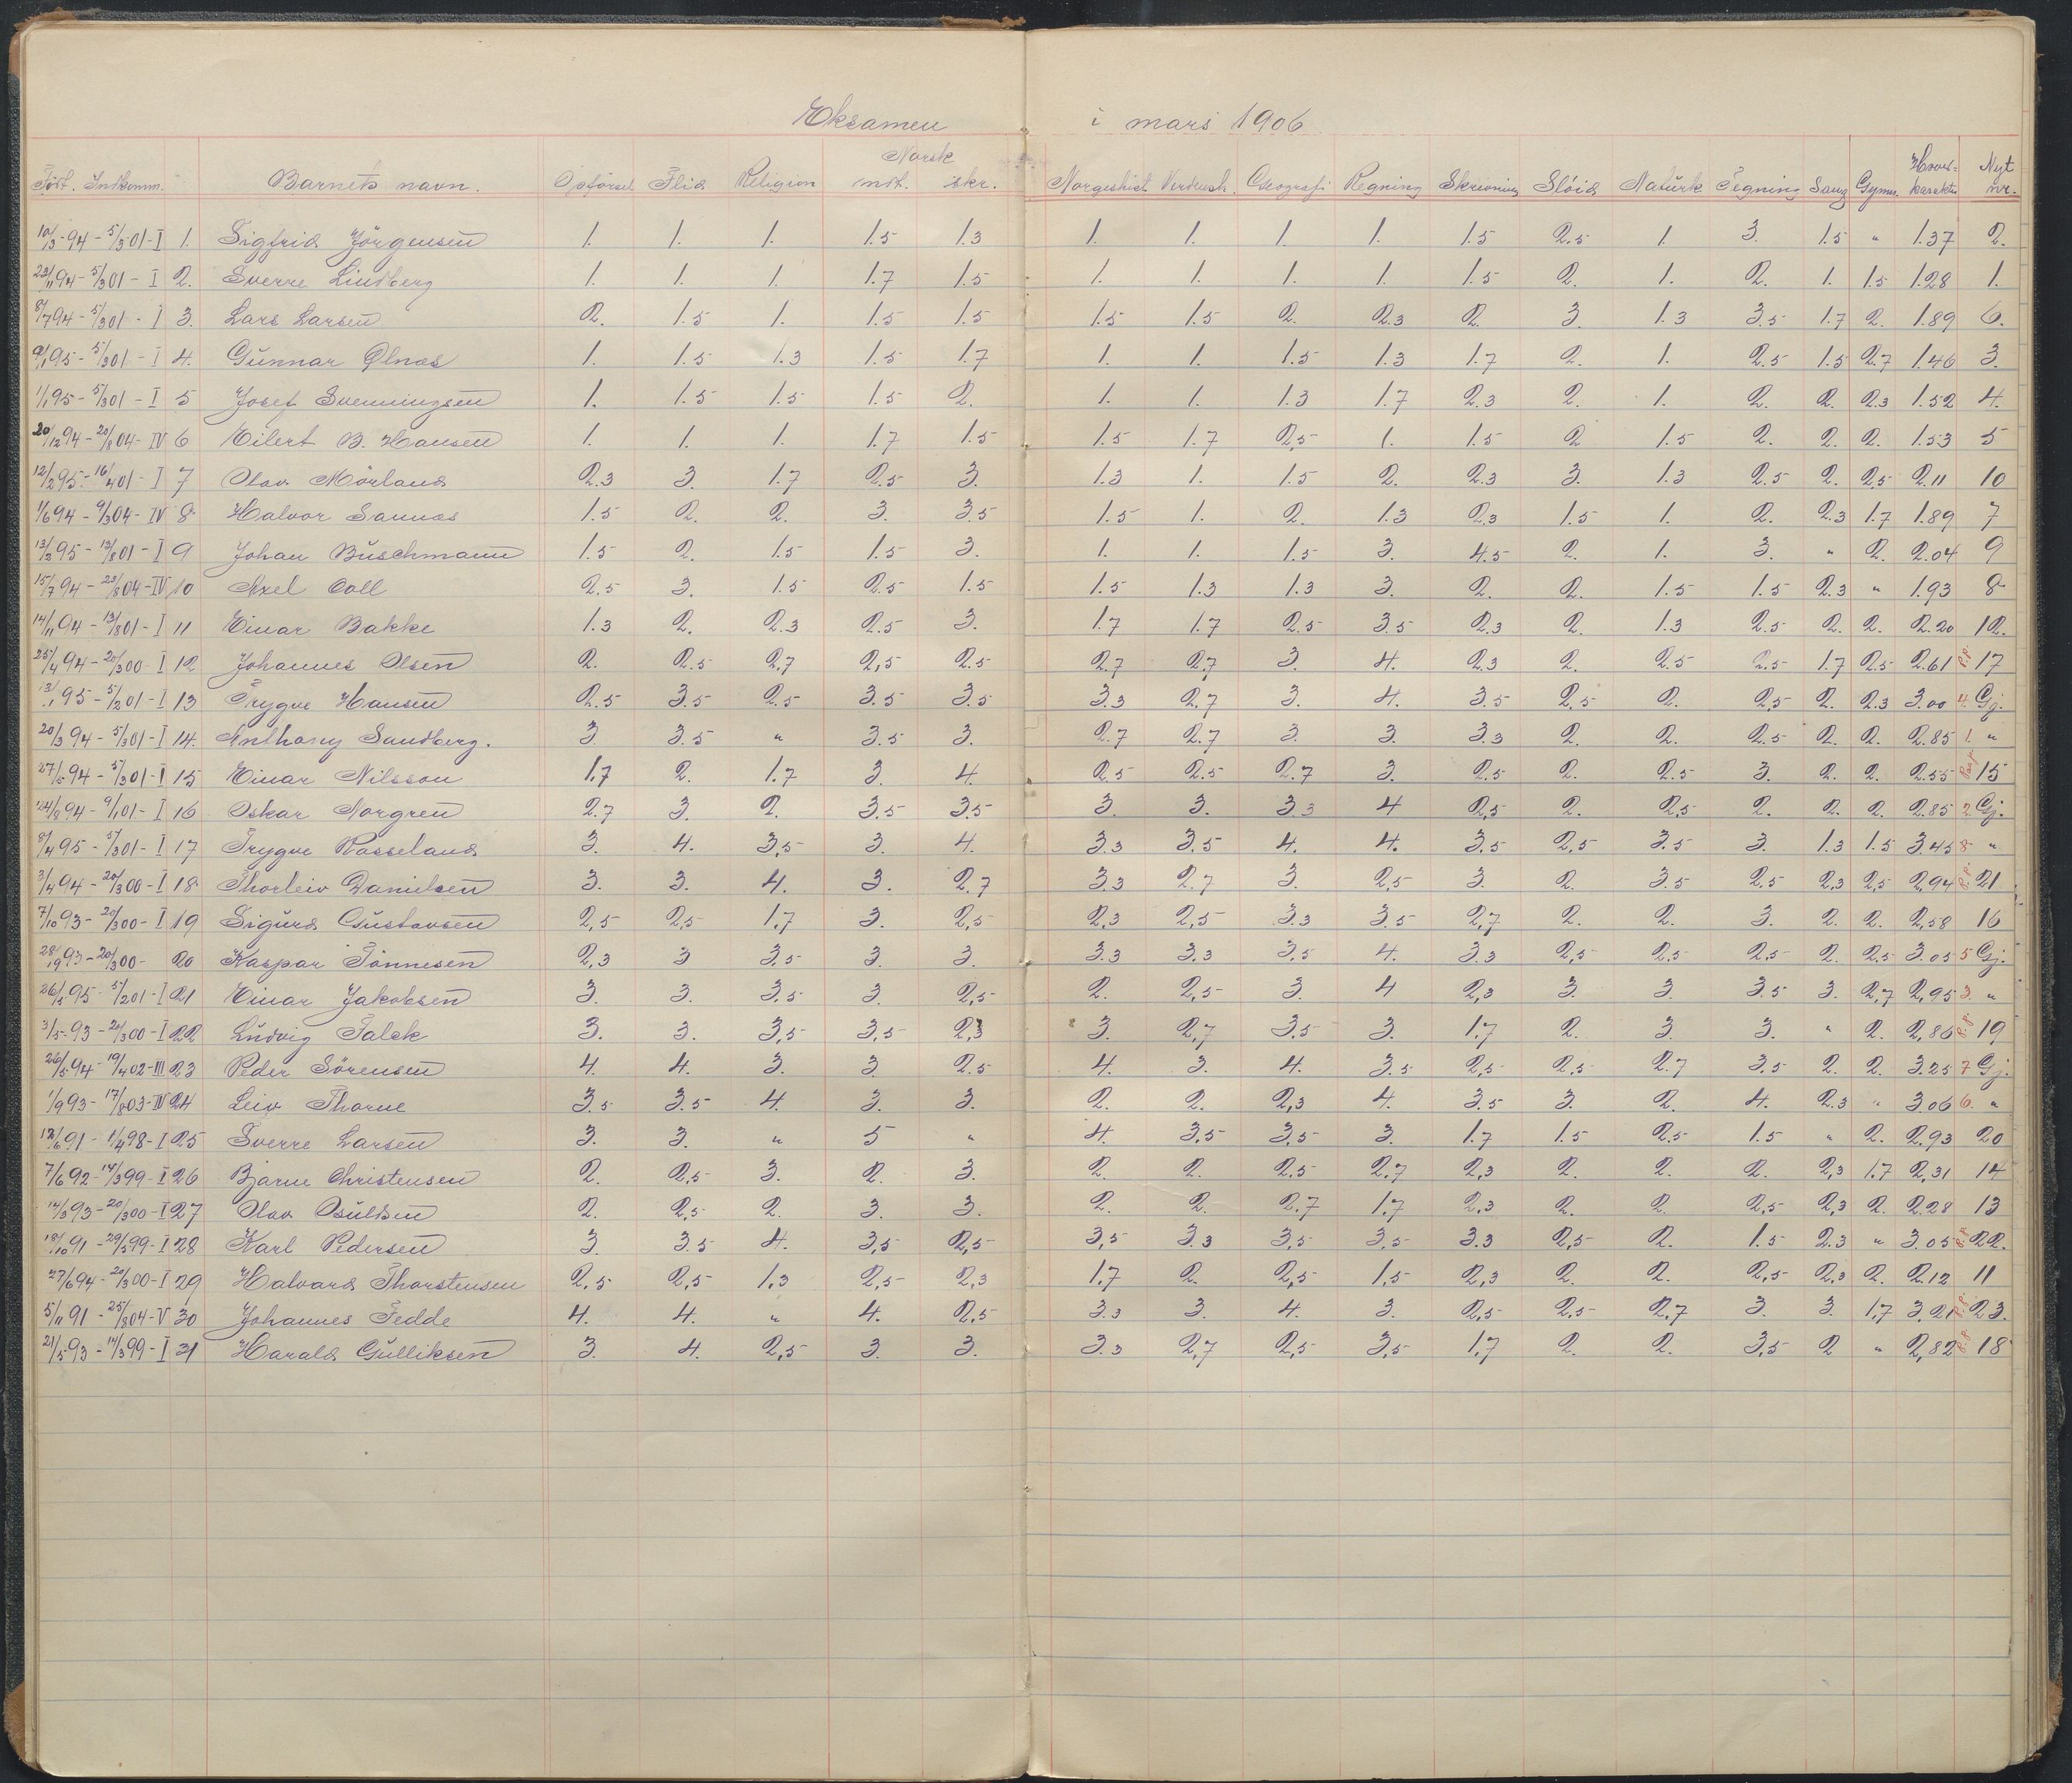 Eksamen i mars 1906
Norsk
Født. Indkomm. Barnets navn. Opførsel Flid Religion mdt. skr. Norgeshist. Verdensh. Geografi Regning Skrivning Sløid Naturk Tegning Sang Gymn. Hoved-karakter Nyt nr.
10/3-94 - 5/3 01 - I 1. Sigfrid Jørgensen 1. 1. 1. 1.5 1.3 1. 1. 1. 1. 1.5 2.5 1. 3. 1.5 " 1.37 2.
23/11 94 - 5/3 01 - I 2. Sverre Lindberg 1. 1. 1. 1.7 1.5 1. 1. 1. 1. 1.5 2. 1. 2. 1. 1.5 1.28 1.
8/7 94 - 5/3 01 - I 3. Lars Larsen 2. 1.5 1. 1.5 1.5 1.5 1.5 2. 2.3 2. 3. 1.3 3.5 1.7 2. 1.89 6.
9/1 95 - 5/3 01 - I 4. Gunnar Ølnæs 1. 1.5 1.3 1.5 1.7 1. 1. 1.5 1.3 1.7 2. 1. 2.5 1.5 2.7 1.46 3.
1/1 95 - 5/3 01 - I 5 Josef Svenningsen 1. 1.5 1.5 1.5 2. 1. 1. 1.3 1.7 2.3 2. 1. 2. 2. 2.3 1.52 4.
20/12 94 - 20/8 04 - IV 6 Eilert B. Hansen 1. 1. 1. 1.7 1.5 1.5 1.7 2,5 1. 1.5 2 1.5 2. 2. 2. 1.53 5
12/2 95 - 16/4 01 - I 7 Olav Mørland 2.3 3. 1.7 2.5 3. 1.3 1. 1.5 2. 2.3 3. 1.3 2.5 2. 2,5 2.11 10
1/6 94 - 9/3 04 - IV 8 Halvor Sannæs 1.5 2. 2. 3. 3.5 1.5 1. 2. 1.3 2.3 1.5 1. 2. 2.3 1.7 1.89 7
13/2 95 - 13/8 01 - I 9 Johan Buschmann 1.5 2. 1.5 1.5 3. 1. 1. 1.5 3. 4.5 2. 1. 3. " 2. 2.04 9
15/7 94 - 23/8 04 - IV 10 Axel Coll 2.5 3. 1.5 2.5 1.5 1.5 1.3 1.3 3. 2. 2. 1.5 1.5 2.3 " 1.93 8
14/11 94 - 13/8 01 - I 11 Einar Bakke 1.3 2. 2.3 2.5 3. 1.7 1.7 2.5 3.5 2.3 2. 1.3 2.5 2. 2. 2.20 12.
25/4 94 - 20/3 00 - I 12 Johannes Olsen 2. 2.5 2,7 2,5 2.5 2.7 2.7 3. 4. 2.3 2. 2.5 2.5 1.7 2.5 2.61 P.p. 17
13/1 95 - 5/2 01 - I 13 Trygve Hansen 2.5 3.5 2.5 3.5 3.5 3.3 2.7 3. 4. 3.5 2,5 2. 2,5 2. 2.3 3.00 4. Gj.
20/3 94 - 5/3 01 - I 14. Anthony Sandberg. 3. 3.5 " 3.5 3. 2.7 2.7 3. 3. 3.3 2. 2. 2.5 2. 2. 2.85 1. "
27/5 94 - 5/3 01 - I 15 Einar Nilsson 1.7 2. 1.7 3. 4. 2.5 2.5 2.7 3. 2.5 2. 2.5 3. 2. 2. 2.55 15
24/8 94 - 9/1 01 - I 16 Oskar Norgren 2.7 3. 2. 3.5 3.5 3. 3. 3.3 4 2,5 2. 2,5 2. 2. 2. 2.85 2. Gj.
8/4 95 - 5/3 01 - I 17 Trygve Rosseland 3. 4. 3,5 3. 4. 3.3 3.5 4. 4. 3.5 2,5 3.5 3. 1.3 1.5 3.45 8. "
3/4 94 - 20/3 00 - I 18 Thorleiv Danielsen 3. 3. 4. 3. 2.7 3.3 2.7 3. 2,5 3. 2. 3.5 2,5 2,3 2,5 2,94 P.p. 21
7/10 93 - 20/3 00 - I 19 Sigurd Gustavsen 2,5 2,5 1.7 3. 2,5 2,3 2,5 3.3 3.5 2,7 2. 2. 3. 2. 2. 2,58 16
28/9 93 - 20/3 00 - 20 Kaspar Tønnesen 2,3 3 3.5 3. 3. 3.3 3.3 3.5 4. 3.3 2,5 2.5 2,5 2. 2.5 3.05 5 Gj.
26/5 95 - 5/2 01 - I 21 Einar Jakobsen 3. 3. 3.5 3. 2,5 2. 2,5 3. 4 2,3 3. 3. 3.5 3. 2,7 2,95 3. "
3/5-93 - 20/3 00 - I 22 Ludvig Falck 3. 3. 3,5 3,5 2,3 3. 2,7 3.5 3. 1.7 2. 3. 3. " 2. 2,86 P.p. 19
26/5 94 - 19/4 02 - III 23 Peder Sørensen 4. 4. 3. 3. 2.5 4. 3. 4. 3.5 2,5 2,5 2.7 3.5 2. 2. 3.25 7 Gj.
1/9 93 - 17/8 03 - IV 24 Leiv Thorne 3.5 3.5 4. 3. 3. 2. 2. 2,3 4. 3.5 3. 2. 4. 2.3 " 3.06 6. "
12/6 91 - 1/4 98 - I 25 Sverre Larsen 3. 3. " 5 " 4. 3,5 3,5 3. 1.7 1.5 2.5 1.5 " 2. 2.93 20
7/6 92 - 14/3 99 - I 26 Bjarne Christensen 2. 2,5 3. 2. 3. 2. 2. 2.5 2.7 2,3 2. 2. 2. 2,3 1.7 2,31 14
14/3 93 - 20/3 00 - I 27 Olav Osuldsen 2. 2,5 2. 3. 3. 2. 2. 2.7 1.7 2.3 2. 2. 2,5 2,3 2. 2.28 13
18/10 91 - 29/5 99 - I 28 Karl Pedersen 3. 3.5 4. 3,5 2,5 3,5 3.3 3,5 3,5 3.3 2,5 2. 1.5 2.3 " 3.05 P.p. 22.
27/6 94 - 20/3 00 - I 29 Halvard Thorstensen 2,5 2,5 1,3 2,5 2,3 1,7 2. 2,5 1,5 2,3 2. 2. 2,5 2,3 2. 2.12 11
5/11 91 - 25/8 04 - V 30 Johannes Fedde 4. 4. " 4. 2,5 3.3 3. 4. 3. 2,5 2,5 2,7 3. 3. 1,7 3,21 P.p. 23.
21/5 93 - 14/3 99 - I 31 Harald Gulliksen 3. 4. 2,5 3. 3. 3.3 2,7 2,5 3,5 1,7 2. 2. 3,5 2 " 2,82 P.p. 18